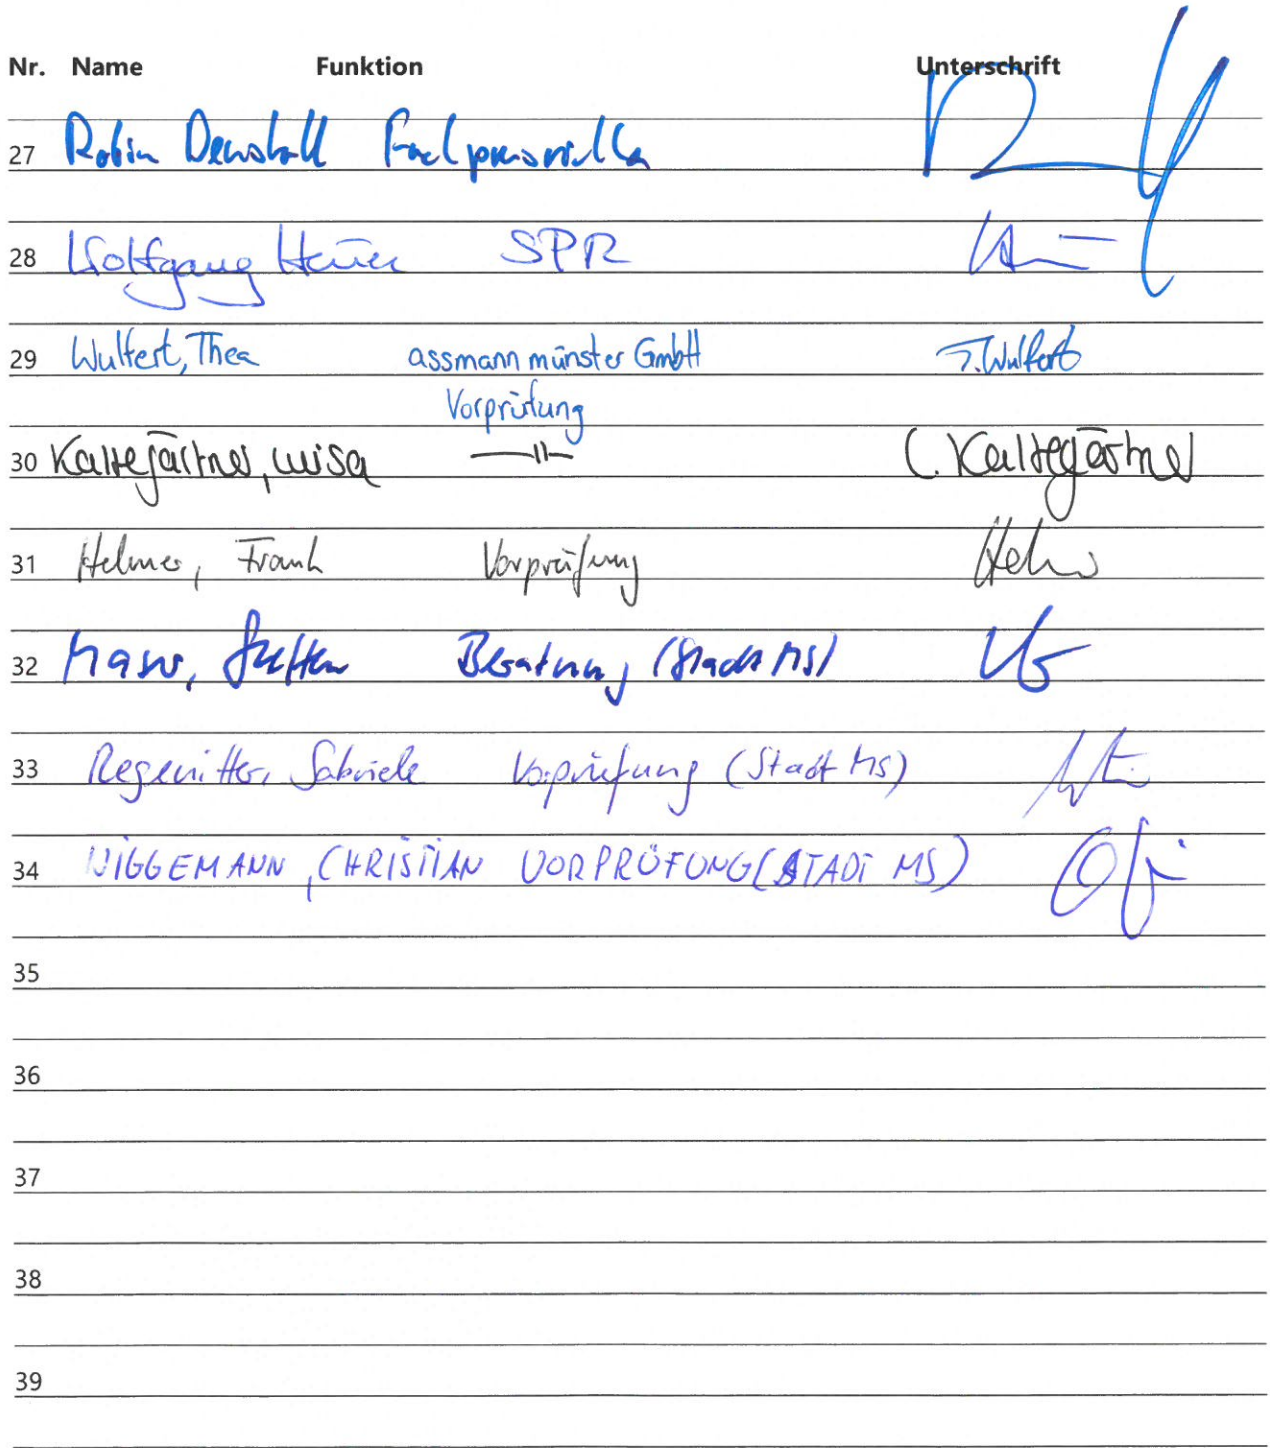 Nr. Name Funktion Unterschrift
27 Robin Denstorff
28 Wolfgang Heuer SPR
29 Wulfert, Thea assmann münster GmbH T. Wulfert
Vorprüfung
30 Kaltegärtner, Luisa —"— L. Kaltegärtner
31 Helmer, Frank Vorprüfung
32 Steffen Beratung (Stadt MS)
33 Regenitter, Gabriele Vorprüfung (Stadt MS)
34 WIGGEMANN, CHRISTIAN VORPRÜFUNG (STADT MS)
35
36
37
38
39